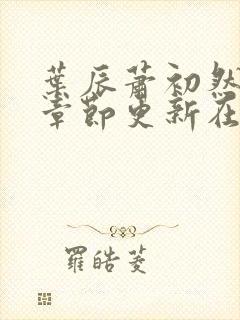 葉辰蕭初然
章節更新在
羅皓菱